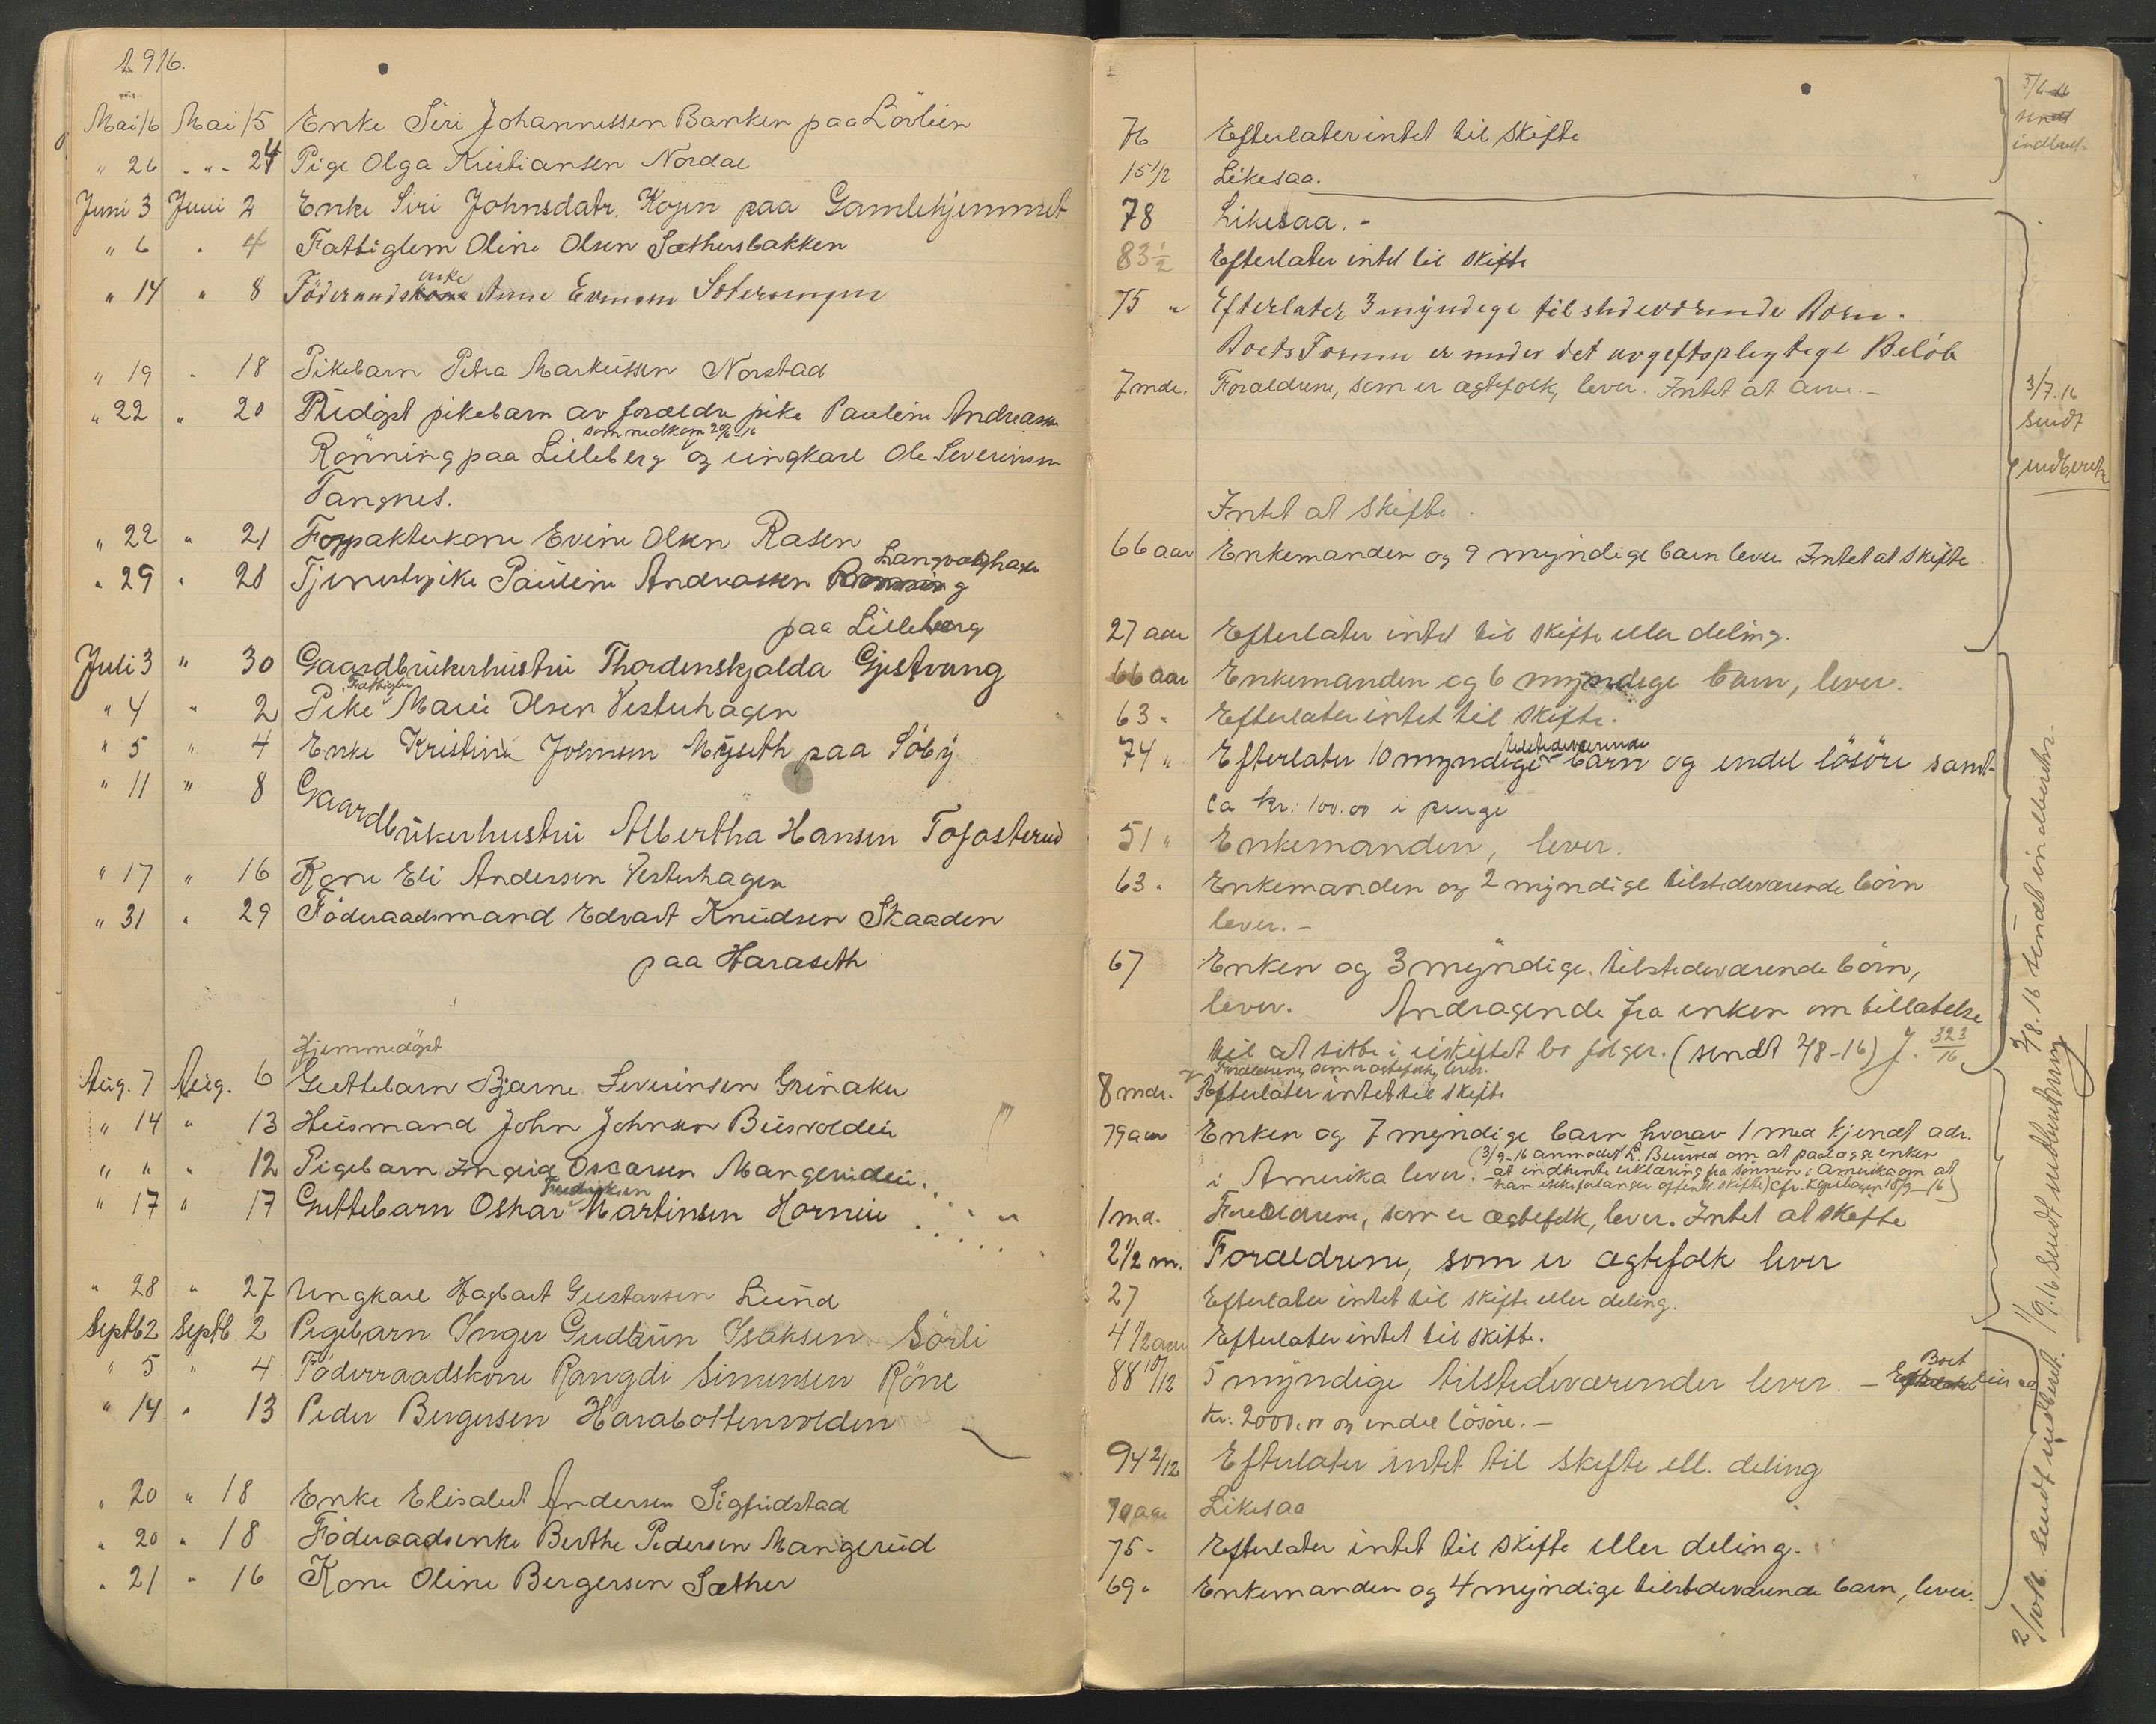 1916.
Mai 16 Mai 15 Enke Siri Johannessen Banken paa Lövlien
" 26 " 24 Pige Olga Kristiansen Nordal
Juni 3 Juni 2 Enke Siri Johnsdatr. Kogen paa Gamlehjemmet
" 6 " 4 Fattiglem Oline Olsen Sæthersbakken
enke
" 14 " 8 Föderaads Anne Evensen
" 19 " 18 Pikebarn Petra Markussen Norstad
" 22 " 20 pikebarn av forældre pike Pauline Andreassen
som nedkom 20/6-16
Rönning paa Lilleberg og ungkarl Ole Severinsen
Tangnes.
" 22 " 21 Forpakterkone Evine Olsen Rasen
" 29 " 28 Tjenestepike Pauline Andreassen Rönning
paa Lilleberg
Juli 3 " 30 Gaardbrukerhustru Thordenskjolda Gjestvang
Fattiglem
" 4 " 2 Pike Marie Olsen Vesterhagen
" 5 " 4 Enke Kristine Johnsen Myseth paa Söby
" 11 " 8 Gaardbrukerhustru Albertha Hansen Tofasterud
" 17 " 16 Kone Eli Andersen Vesterhagen
" 31 " 29 Föderaadsmand Edvart Knudsen Skaaden
paa Haraseth
Hjemmedöpt
Aug. 7 Aug. 6 Guttebarn Bjarne Severinsen Grinaker
" 14 " 13 Husmand John Johnsen Busvolden
" " " 12 Pigebarn Ingrid Oscarsen Mangerudeie.
Fredriksen
" 17 " 17 Guttebarn Oskar Martinsen Horneie
" 28 " 27 Ungkarl Hagbart Gustavsen Lund
Septb 2 Septb 2 Pigebarn Inger Gudrun Isaksen Sörli
" 5 " 4 Föderraadskone Rangdi Simensen Röne
" 14 " 13 Peder Bergersen Haraboltensvolden
" 20 " 18 Enke Elisabet Andersen Sigfridstad
" 20 " 18 Föderaadsenke Berthe Pedersen Mangerud
" 21 " 16 Kone Oline Bergersen Sæther
76 Efterlater intet til skifte
15 1/2 Likesaa.
78 Likesaa. -
83 1/2 Efterlater intet til skifte
75 " Efterlater 3 myndige tilstedeværende Born.
Boets Formue er under det avgiftspligtige Belöb
7 mdr. Forældrene, som er ægtefolk, lever. Intet at arve. -
Intet at skifte.
66 aar Enkemanden og 9 myndige barn lever. Intet at skifte.
27 aar Efterlater intet til skifte eller deling.
66 aar Enkemanden og 6 myndige barn, lever.
63 " Efterlater intet til skifte.
tilstedeværende
74 " Efterlater 10 myndige barn og endel lösöre samt
ca kr: 100.00 i penge
51 " Enkemanden, lever.
63 " Enkemanden og 2 myndige tilstedeværende börn
lever. -
67 Enken og 3 myndige tilstedeværende börn,
lever. Andragende fra enken om tillatelse
til at sitte i uskiftet bo følger. (sendt 7/8-16) J. 323/16
Forældrene, som er ægtefolk, lever.
8 mdr. Efterlater intet til skifte
79 aar Enken og 7 myndige barn hvorav 1 med kjendt adr.
(3/9-16 anmodet L. Busvold om at paalægge enken
i Amerika lever. - at indhente erklæring fra sönnen i Amerika om at
han ikke forlanger offentl. skifte) cfr. Kopibogen 18/9-16)
1 md. Forældrene, som er ægtefolk, lever. Intet at skifte
2 1/2 m. Forældrene, som er ægtefolk lever
27 Efterlater intet til skifte eller deling.
4 1/2 aar Efterlater intet til skifte.
88 10/12 5 myndige tilstedeværender lever. - Boet eier ca
kr: 2000.00 og endel lösöre. -
94 2/12 Efterlater intet til skifte ell. deling
70 aar Likesaa
75 - Efterlater intet til skifte eller deling.
69 " Enkemanden og 4 myndige tilstedeværende barn, lever.
5/6
sendt
indberetn.
3/7.16
sendt
indberetn
7/8.16 sendt indberetn.
1/9.16 sendt indberetning
2/10.16. sendt indberet.